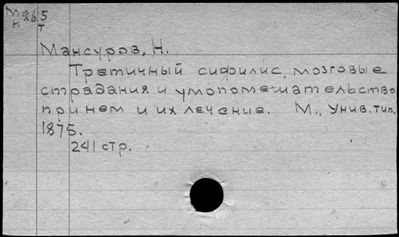 М 26 5
н т
Мансуров, Н.
Третичный сифилис, мозговые
страдания и умопомешательство
при нем и их лечение. М., Унив. тип.,
1875.
241 стр.